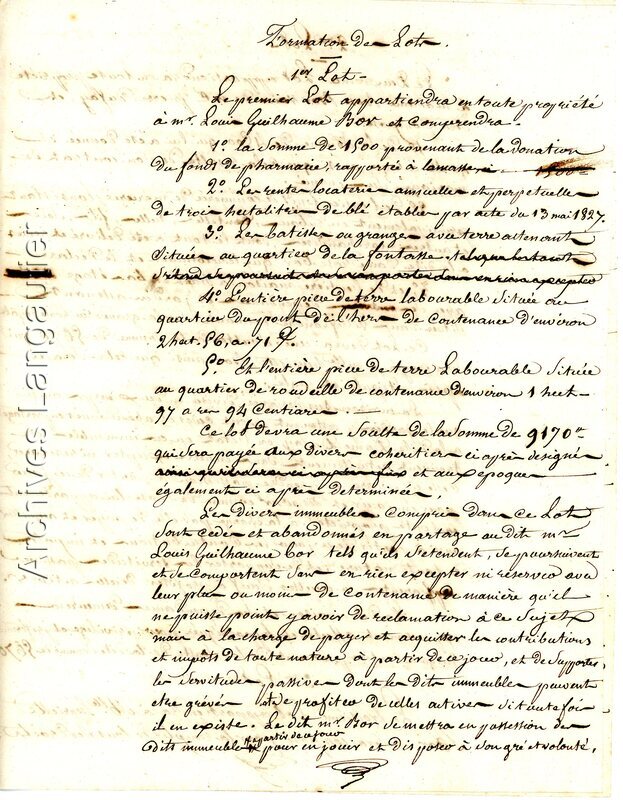 Formation des Lots.
1er Lot -
Le premier Lot appartiendra en toute propriété
à mr. Louis Guilhaume Bor et comprendra.
1.° la somme de 1500 provenant de la donation
du fonds de pharmacie, rapportée à la masse ci . 1500=
2.° Les rentes locaterie annuelle et perpetuelle
de trois hectolitres de blé établie par acte du 13 mai 1827.
3.° Les batisse ou grange avec terre attenant
située au quartier de la fontasse
4.° L'entière piece de terre labourable située au
quartier du pont de l'hers de contenance d'environ
2 hect. 56, a. 71 C.
5.° Et l'entière piece de terre Labourable située
au quartier de roudeille de contenance d'environ 1 hect
97 ares 94 Centiares . -
Ce lot devra une Soulte de la Somme de 9170 fr
qui sera payée aux divers coheritiers ci après designés
et aux epoques
également ci après determinées.
Les divers immeubles compris dans ce Lot
sont cedés et abandonnés en partage au dit mr.
Louis Guilhaume bor tels qu'ils s'etendent, se poursuivent
et se comportent sans en rien excepter ni reserver avec
leur plus ou moins de contenance de manière qu'il
ne puisse point y avoir de reclamation à ce sujet
mais à la charge de payer et acquitter les contributions
et impôts de toute nature à partir de ce jour, et de supporter
les servitudes passives dont les dits immeubles peuvent
etre grévés de profiter de celles actives si toute fois
il en existe. Le dit mr. Bor se mettra en possession des
dits immeubles à partir de ce jour pour en jouir et disposer à son gré et volonté.
Archives Langautier